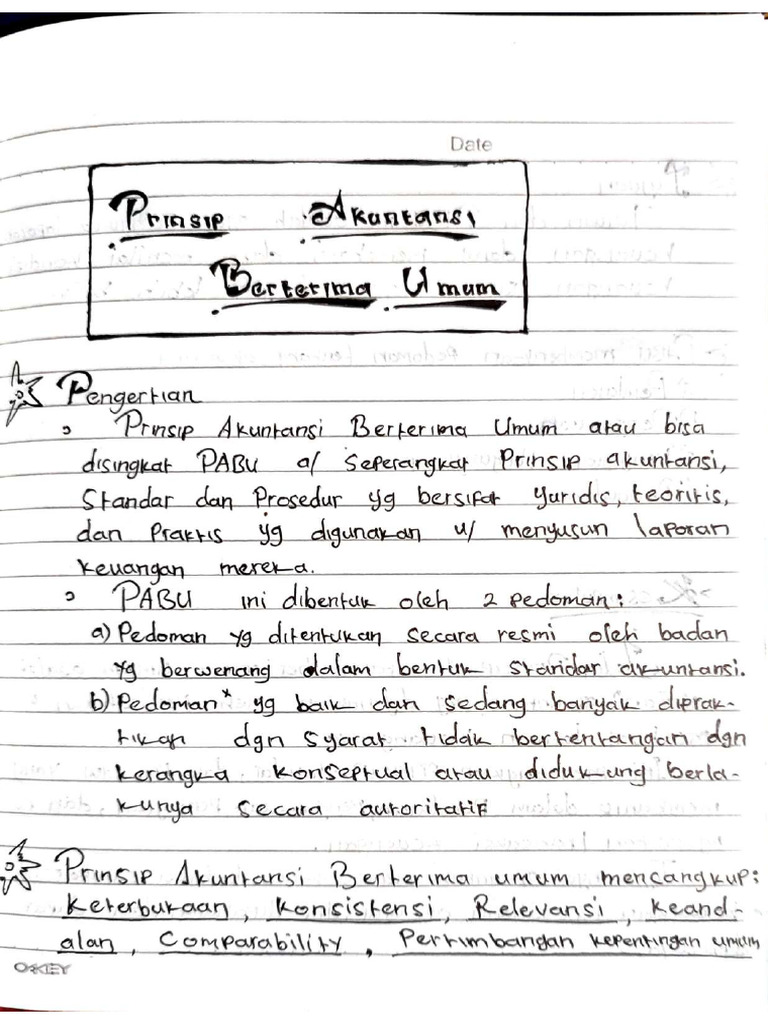 Date
Prinsip Akuntansi
Berterima Umum
Pengertian
Prinsip Akuntansi Berterima Umum atau bisa
disingkat PABU a/ seperangkat Prinsip akuntansi,
Standar dan Prosedur yg bersifat yuridis, teoritis,
dan Praktis yg digunakan u/ menyusun laporan
keuangan mereka.
PABU ini dibentuk oleh 2 pedoman:
a) Pedoman yg ditentukan secara resmi oleh badan
yg berwenang dalam bentuk standar akuntansi.
b) Pedoman* yg baik dan sedang banyak diprak-
tikan dgn syarat tidak bertentangan dgn
kerangka konseptual atau didukung berla-
kunya secara autoritatif
Prinsip Akuntansi Berterima umum mencangkup:
Keterbukaan, Konsistensi, Relevansi, Keand-
alan, Comparability, Pertimbangan kepentingan umum
OKEY